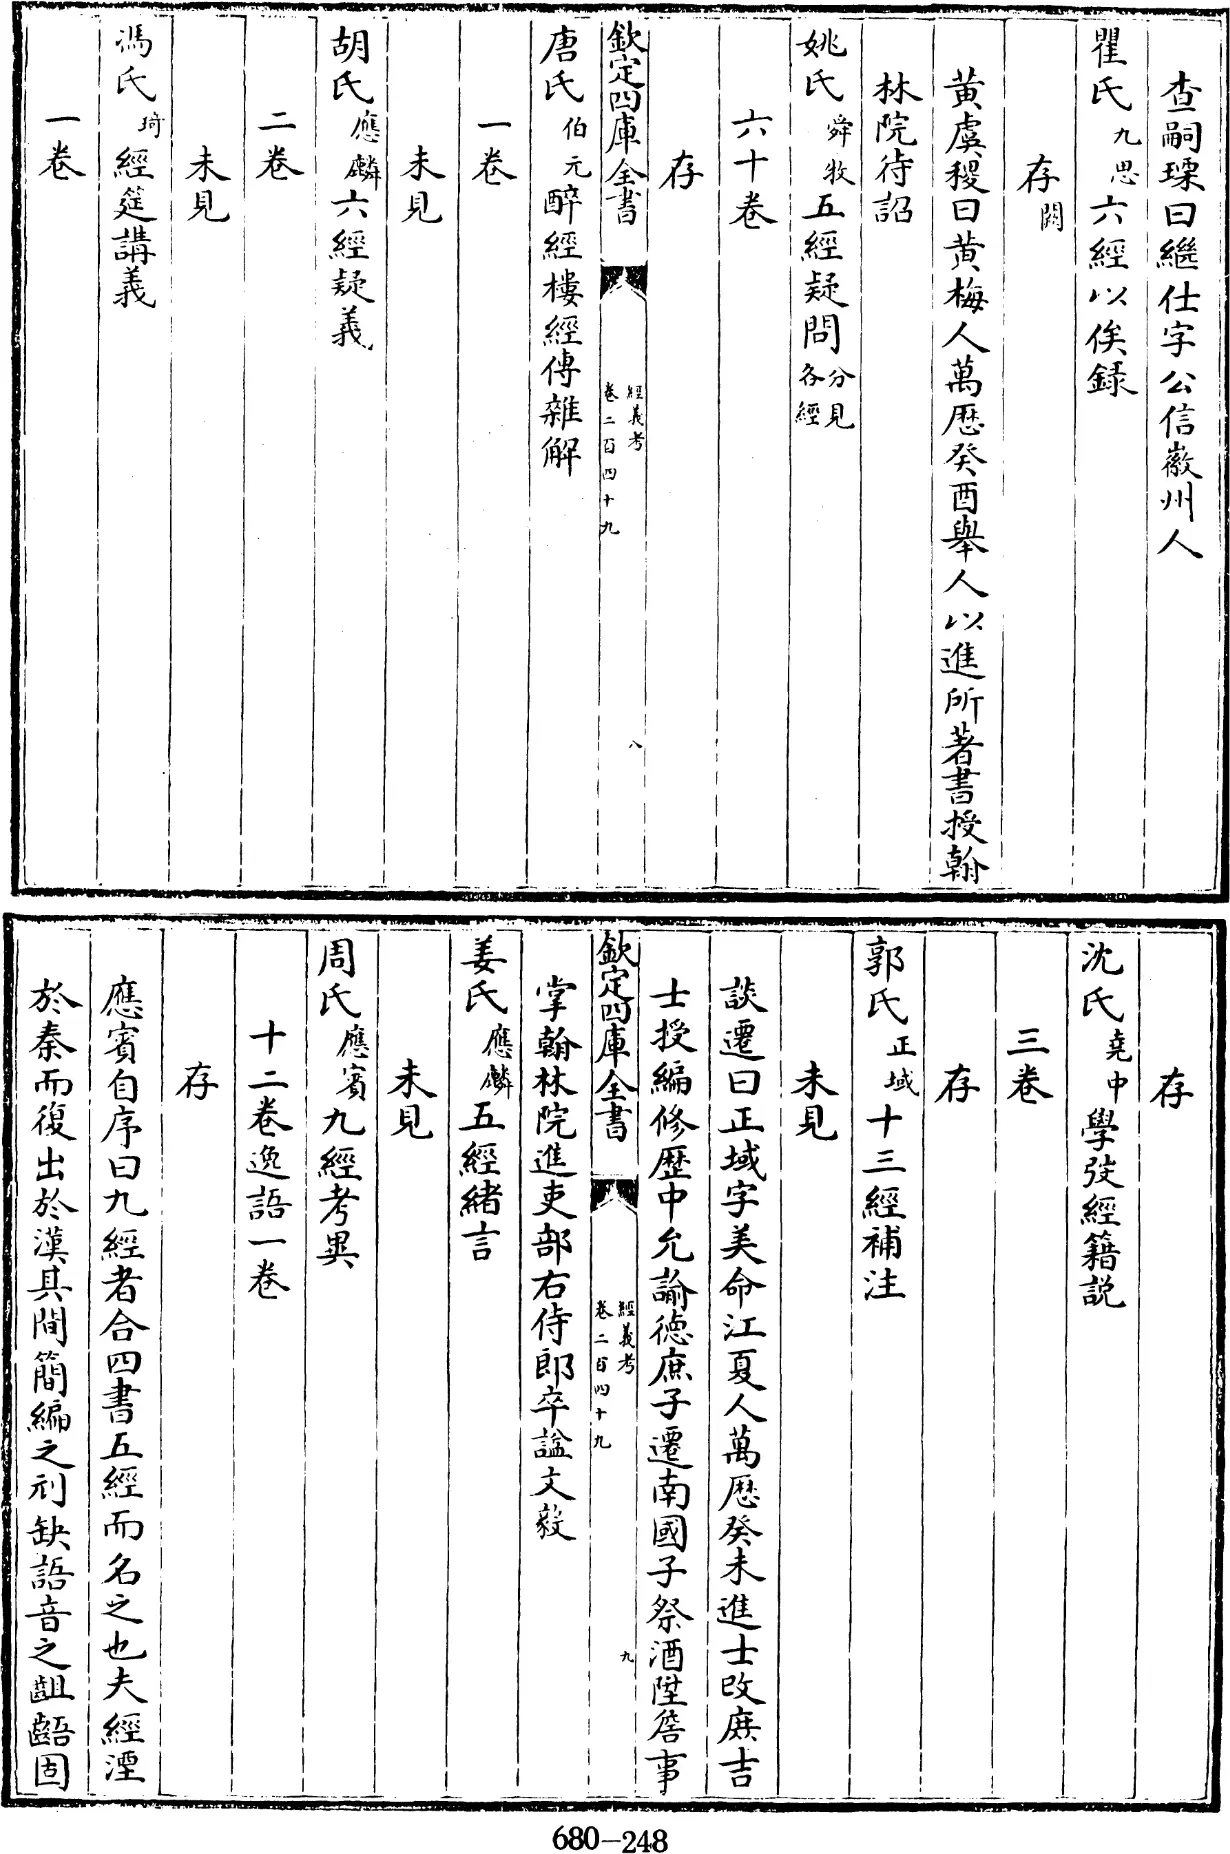 查嗣瑮曰繼仕字公信徽州人
瞿氏九思六經以俟録
存闕
黄虞稷曰黄梅人萬歴癸酉舉人以進所著書授翰
林院待詔
姚氏舜牧五經疑問分見各經
六十卷
存
欽定四庫全書
經義考
卷二百四十九
八
唐氏伯元醉經樓經傳雜解
一卷
未見
胡氏應麟六經疑義
二卷
未見
馮氏琦經筵講義
一卷
存
沈氏堯中學弢經籍説
三卷
存
郭氏正域十三經補注
未見
談遷曰正域字美命江夏人萬歴癸未進士改庶吉
士授編修歴中允諭德庶子遷南國子祭酒陞詹事
欽定四庫全書
經義考
卷二百四十九
九
掌翰林院進吏部右侍郎卒諡文毅
姜氏應麟五經緒言
未見
周氏應賓九經考異
十二卷逸語一卷
存
應賓自序曰九經者合四書五經而名之也夫經湮
於秦而復出於漢其間簡編之刓缺語音之齟齬固
680-248